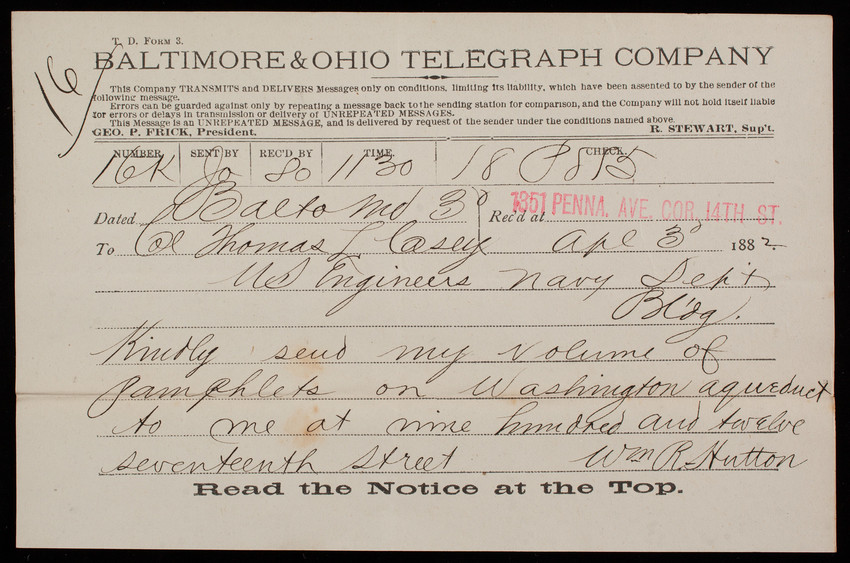 T. D. FORM 3.
16
BALTIMORE & OHIO TELEGRAPH COMPANY
This Company TRANSMITS and DELIVERS Messages only on conditions, limiting its liability, which have been assented to by the sender of the
following message.
Errors can be guarded against only by repeating a message back to the sending station for comparison, and the Company will not hold itself liable
for errors or delays in transmission or delivery of UNREPEATED MESSAGES.
This Message is an UNREPEATED MESSAGE, and is delivered by request of the sender under the conditions named above.
GEO. P. FRICK, President. R. STEWART, Sup't.
NUMBER. SENT BY REC'D BY TIME. CHECK.
16K Jo So 1130 18
Dated Balto Md 3d Rec'd at 1351 PENNA. AVE. COR. 14TH ST.
To Col Thomas L Casey Apl 3d 1882
US Engineers Navy Dept
Bldg.
Kindly send my volume of
pamphlets on Washington aqueduct
to me at nine hundred and twelve
seventeenth street Wm R. Hutton
Read the Notice at the Top.